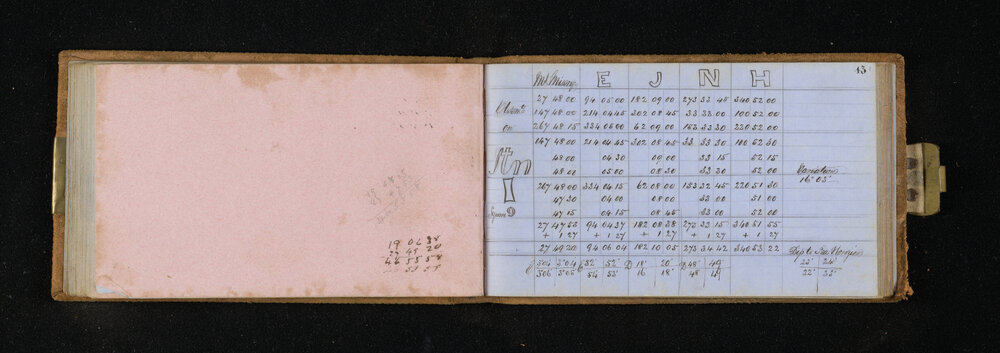 19 06 38
27 49 20
46 55 58
43
E J N H
27 48 00 94 05 00 182 09 00 273 33 45 340 52 00
147 48 00 214 04 45 302 08 45 33 33 00 100 52 00
on 267 48 15 334 05 00 62 09 00 153 33 30 220 52 00
147 48 00 214 04 45 302 08 45 33 33 30 100 52 30
Stn 48 00 04 30 09 00 33 15 52 15
48 00 05 00 08 30 33 30 52 00
Variation
16° 05'
I 267 48 00 334 04 15 62 08 00 153 32 45 220 51 30
47 30 04 00 08 00 33 00 51 00
Square 47 15 04 15 08 45 33 00 52 00
27 47 53 94 04 37 182 08 38 273 33 15 340 51 55
+ 1 27 + 1 27 + 1 27 + 1 27 + 1 27
27 49 20 94 06 04 182 10 05 273 34 42 340 53 22
Dep to Sea Horizon
52' 52' D 18' 20' D 48' 49'
54 53' 16 18' 48 49
22' 24'
22' 32'